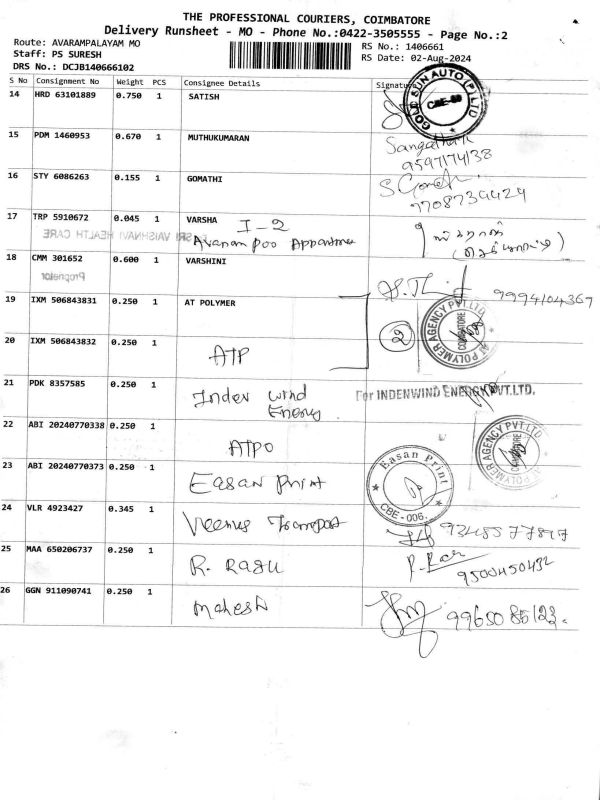 THE PROFESSIONAL COURIERS, COIMBATORE
Delivery Runsheet - MO - Phone No.:0422-3505555 - Page No.:2
Route: AVARAMPALAYAM MO
RS No.: 1406661
Staff: PS SURESH
RS Date: 02-Aug-2024
DRS No.: DCJB140666102
S No Consignment No Weight PCS Consignee Details Signature
14 HRD 63101889 0.750 1 SATISH
GOLD SUN AUTO (P) LTD
15 PDM 1460953 0.670 1 MUTHUKUMARAN
9597174138
16 STY 6086263 0.155 1 GOMATHI
9708739429
17 TRP 5910672 0.045 1 VARSHA I-2
SRI VAISHNAVI HEALTH CARE
18 CMM 301652 0.600 1 VARSHINI
Proprietor
9994104367
19 IXM 506843831 0.250 1 AT POLYMER
2
AT POLYMER AGENCY PVT.LTD
COIMBATORE
20 IXM 506843832 0.250 1 ATP
21 PDK 8357585 0.250 1 Index Wind Energy
For INDENWIND ENERGY PVT.LTD.
22 ABI 20240770338 0.250 1 ATPO
AT POLYMER AGENCY PVT.LTD
COIMBATORE
23 ABI 20240770373 0.250 1 Easan Print
Easan Print
CBE-006.
24 VLR 4923427 0.345 1 Veenus Transport
25 MAA 650206737 0.250 1 R. Ragu
9500450432
26 GGN 911090741 0.250 1 Mahesh
9965085123.